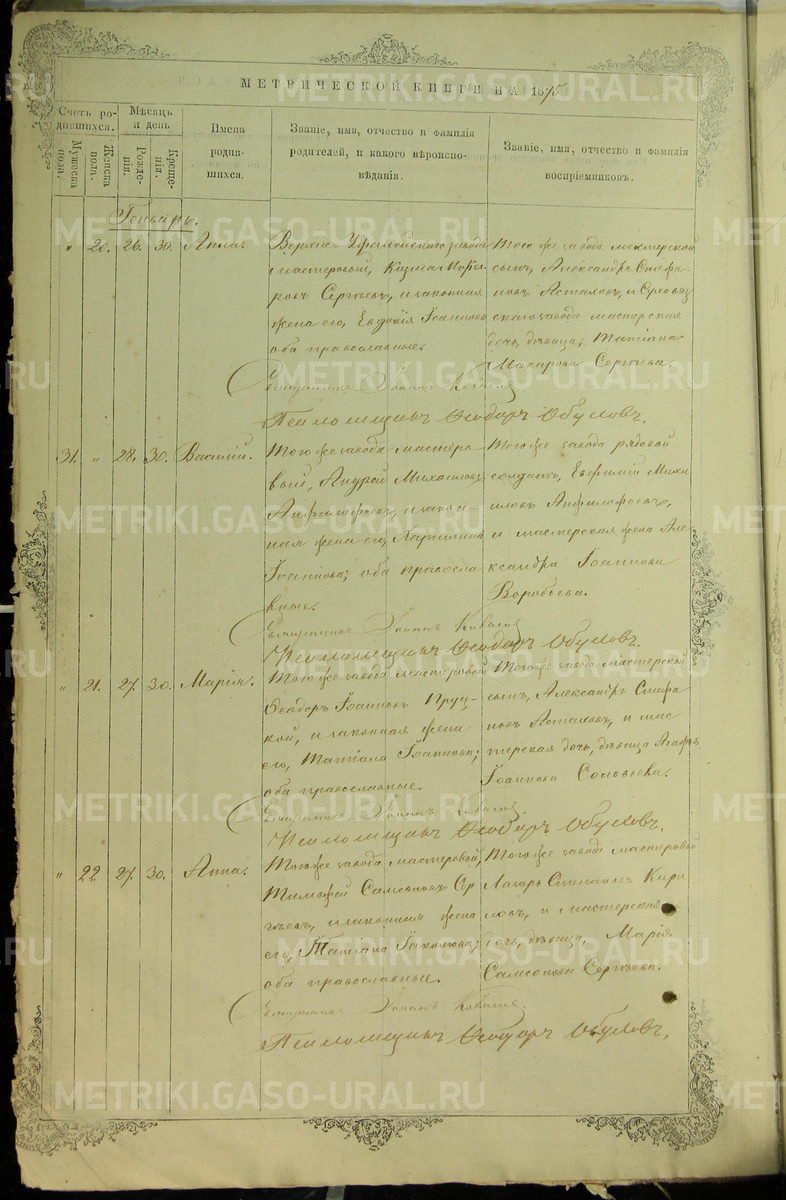 МЕТРИЧЕСКОЙ КНИГИ НА 1875
Счетъ родившихся.
Мужеска пола.
Женска пола.
Мѣсяцъ и день
Рожденія.
Крещенія.
Имена родившихся.
Званіе, имя, отчество и фамилія родителей, и какого вѣроисповѣданія.
Званіе, имя, отчество и фамилія воспріемниковъ.
Генварь.
" 20. 26. 30. Анна.
Верхне-Уфалейскаго завода
мастеровой, Козма
Сергѣевъ, и законная
жена его, Евгенія Іоаннова
оба православные.
Того же завода мастерской
сынъ, Александръ Стефа-
новъ Астаховъ, и
скаго завода мастерская
дочь, дѣвица, Татіана
Макарова Сергѣева.
Священникъ Іоаннъ
Псаломщикъ Ѳеодоръ Обуховъ.
31. " 28. 30. Василій.
Того же завода мастеро-
вый, Андрей Михаиловъ
Анфилофьевъ, и закон-
ная жена его, Харитина
Іоаннова; оба правосла-
вные.
Того же завода рядовой
солдатъ, Евфимій Михаи-
ловъ Анфилофьевъ,
и мастерская жена Але-
ксандра Іоаннова
Воробьева.
Священникъ Іоаннъ
Псаломщикъ Ѳеодоръ Обуховъ.
" 21. 27. 30. Марія.
Того же завода мастеровой
Ѳеодоръ Іоанновъ Пруц-
кой, и законная жена
его, Татіана Іоаннова;
оба православные.
Того же завода мастерской
сынъ, Александръ Стефа-
новъ Астаховъ, и мас-
терская дочь, дѣвица Агафья
Іоаннова Соловьева.
Священникъ Іоаннъ
Псаломщикъ Ѳеодоръ Обуховъ.
" 22. 27. 30. Анна.
Того же завода мастеровой,
Тимофей Самсоновъ Сер-
гѣевъ, и законная жена
его, Татіана
оба православные.
Того же завода мастеровой
Лазарь Степановъ Кири-
ловъ, и мастерская
дочь, дѣвица, Марія
Самсонова Сергѣева.
Священникъ Іоаннъ
Псаломщикъ Ѳеодоръ Обуховъ.
METRIKI.GASO-URAL.RU